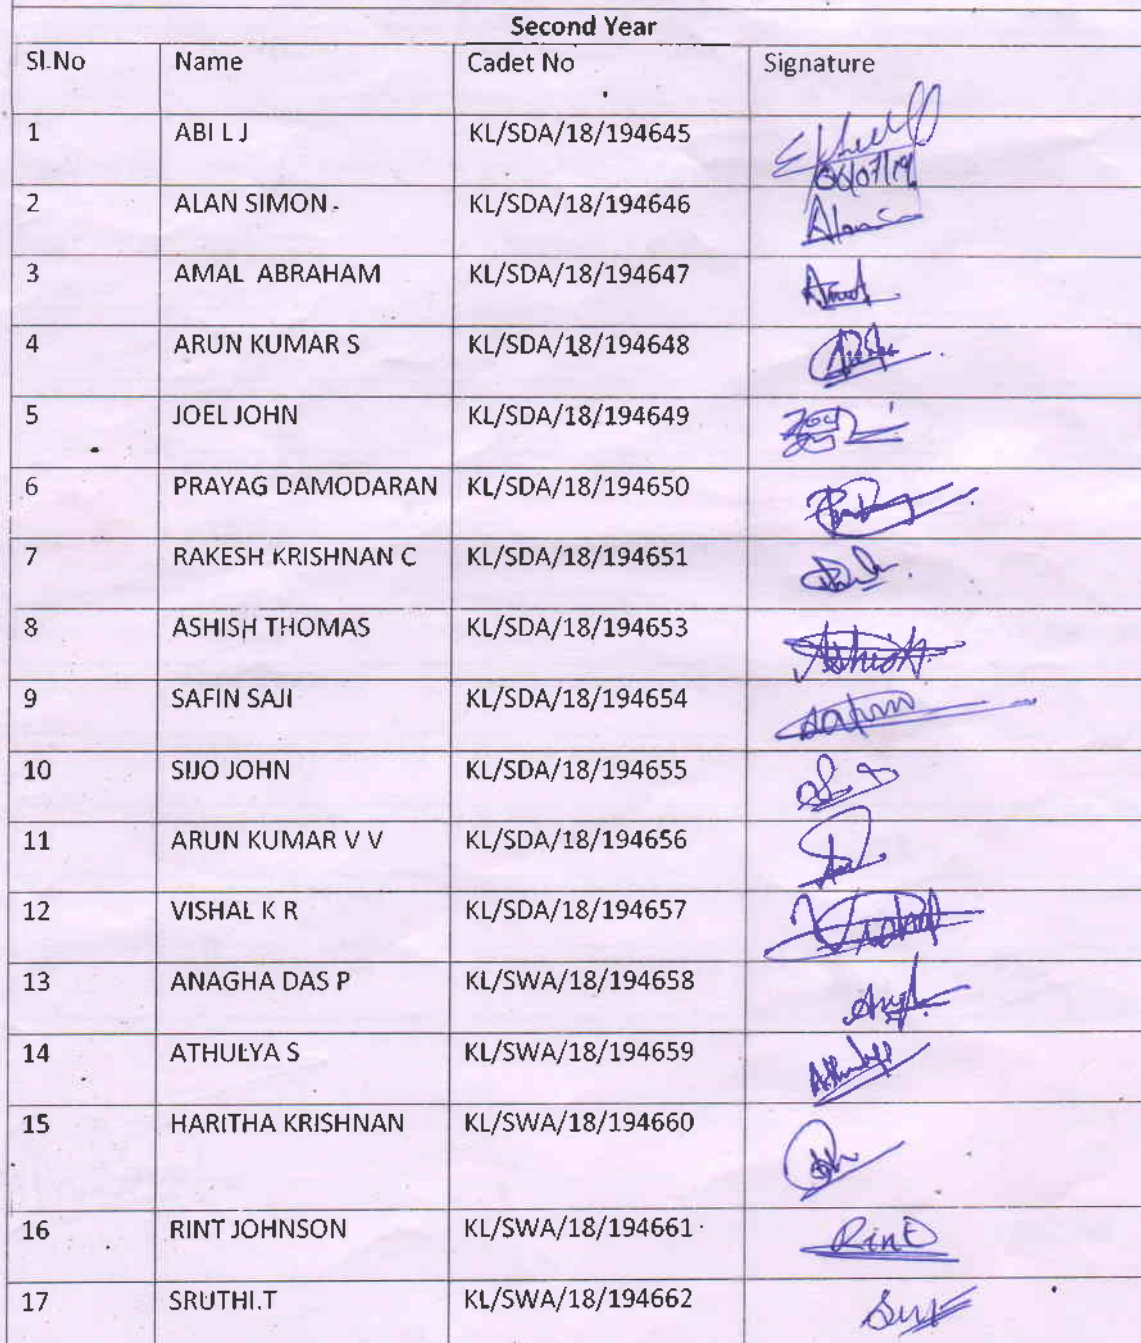 Second Year
Sl.No Name Cadet No Signature
1 ABI L J KL/SDA/18/194645
06/07/19
2 ALAN SIMON KL/SDA/18/194646 Alan
3 AMAL ABRAHAM KL/SDA/18/194647 Amal
4 ARUN KUMAR S KL/SDA/18/194648
5 JOEL JOHN KL/SDA/18/194649
6 PRAYAG DAMODARAN KL/SDA/18/194650
7 RAKESH KRISHNAN C KL/SDA/18/194651
8 ASHISH THOMAS KL/SDA/18/194653 Ashish
9 SAFIN SAJI KL/SDA/18/194654 Safin
10 SIJO JOHN KL/SDA/18/194655
11 ARUN KUMAR V V KL/SDA/18/194656
12 VISHAL K R KL/SDA/18/194657 Vishal
13 ANAGHA DAS P KL/SWA/18/194658
14 ATHULYA S KL/SWA/18/194659 Athulya
15 HARITHA KRISHNAN KL/SWA/18/194660
16 RINT JOHNSON KL/SWA/18/194661 Rint
17 SRUTHI.T KL/SWA/18/194662